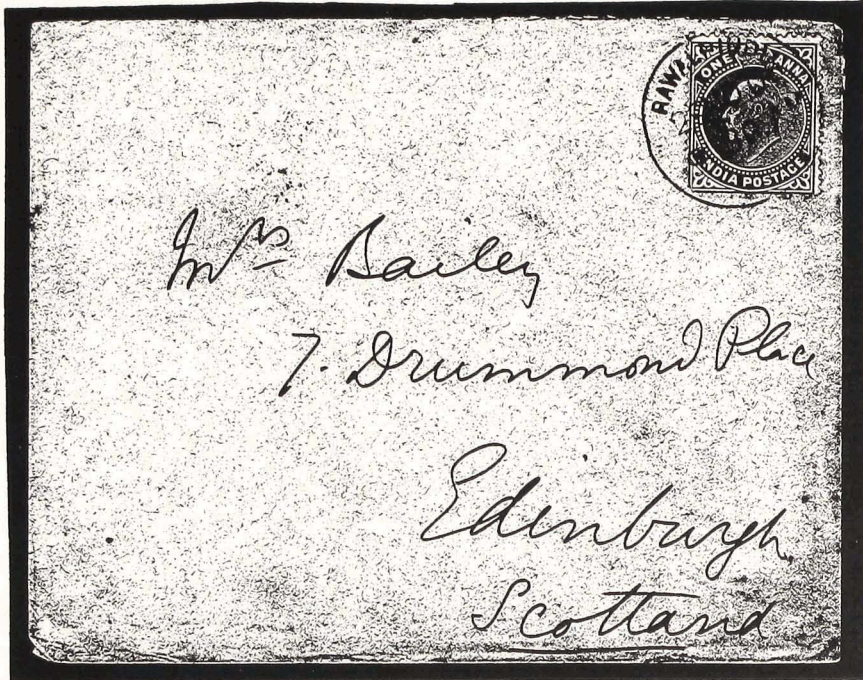 RAWALPINDI
ONE ANNA
INDIA POSTAGE
Mrs Bailey
7. Drummond Place
Edinburgh
Scotland